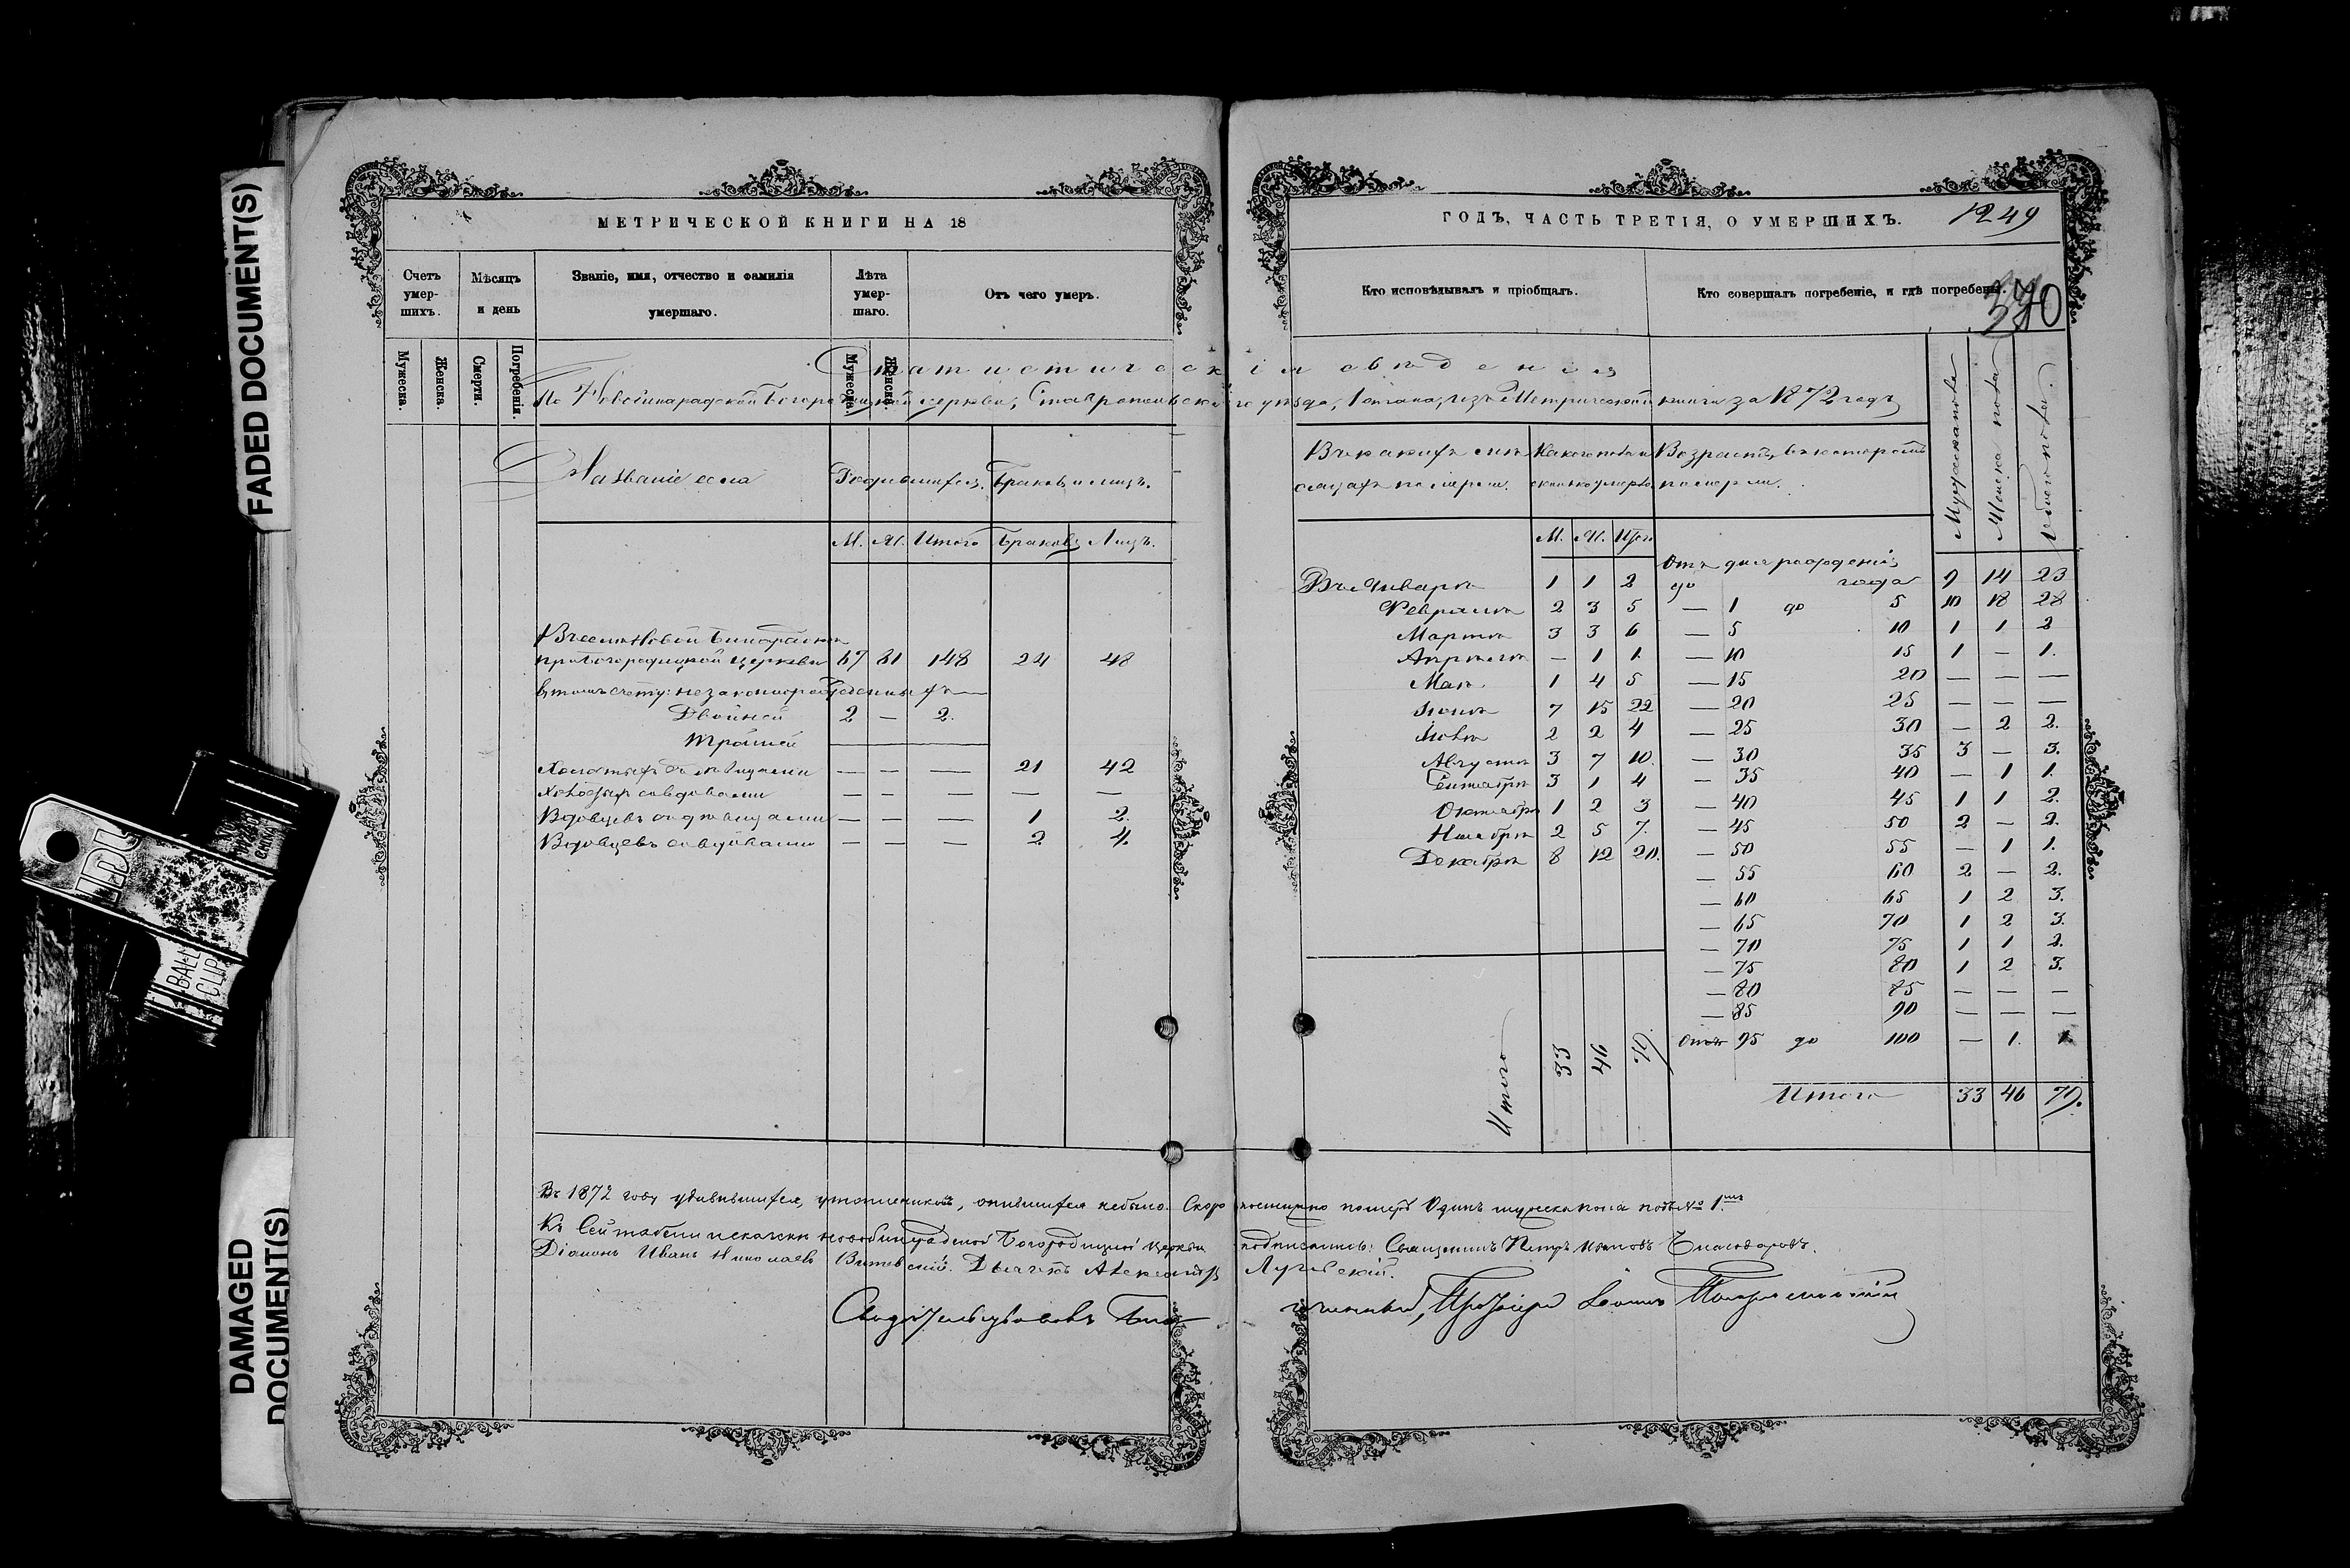 FADED DOCUMENT(S)
DAMAGED DOCUMENT(S)
BALL CLIP
МЕТРИЧЕСКОЙ КНИГИ НА 18
Счетъ умер-шихъ.
Мѣсяцъ и день
Званіе, имя, отчество и фамилія умершаго.
Лѣта умер-шаго.
Отъ чего умеръ.
Мужеска. Женска. Смерти. Погребенія. Мужеска. Женска.
ГОДЪ, ЧАСТЬ ТРЕТІЯ, О УМЕРШИХЪ. 1249
Кто исповѣдывалъ и пріобщалъ.
Кто совершалъ погребеніе, и гдѣ погребены.
370
Статистическія свѣденія
По Новобинарадской Богородицкой церкви, Ставропольскаго уѣзда, изъ Метрической книги за 1872 годъ
Названіе села Родившихся. Браковъ и лицъ.
М. Ж. Итого Браковъ Лицъ.
Въ селѣ Новой Бинарадкѣ
при Богородицкой церкви 67 81 148 24 48
въ томъ счету: незаконнорожденныхъ —
Двойней 2 — 2.
Тройней —
Холостыхъ съ дѣвицами — — — 21 42
Холостыхъ со вдовами — — — — —
Вдовцевъ съ дѣвицами — — — 1 2.
Вдовцевъ со вдовами — — — 2 4.
Въ какихъ мѣсяцахъ померли. Какого пола и сколько умерло Возрастъ, въ которомъ померли.
Мужска пола Женска пола Обоего пола.
М. Ж. Итого
Въ Январѣ 1 1 2
Февралѣ 2 3 5
Мартѣ 3 3 6
Апрѣлѣ — 1 1.
Маѣ 1 4 5
Іюнѣ 7 15 22
Іюлѣ 2 2 4
Августѣ 3 7 10.
Сентябрѣ 3 1 4
Октябрѣ 1 2 3
Ноябрѣ 2 5 7.
Декабрѣ 8 12 20.
Итого 33 46 79.
Отъ дня рожденія
до года 9 14 23
— 1 до 5 10 18 28
— 5 10 1 1 2
— 10 15 1 — 1.
— 15 20 — — —
— 20 25 — — —
— 25 30 — 2 2.
— 30 35 3 — 3.
— 35 40 — 1 1.
— 40 45 1 1 2.
— 45 50 2 — 2.
— 50 55 — 1 1.
— 55 60 2 — 2.
— 60 65 1 2 3.
— 65 70 1 2 3.
— 70 75 1 1 2.
— 75 80 1 2 3.
— 80 85 — — —
— 85 90 — — —
Отъ 95 до 100 — 1. 1
Итого 33 46 79.
Въ 1872 году удавившихся, утопленниковъ, опившихся небыло. Скоропостижно померъ Одинъ мужска пола подъ № 1мъ
Къ сей табели печатки Новобинарадской Богородицкой церкви подписались: Священникъ Петръ Ивановъ
Діаконъ Иванъ Николаевъ Дьячекъ Александръ
Протоіерей